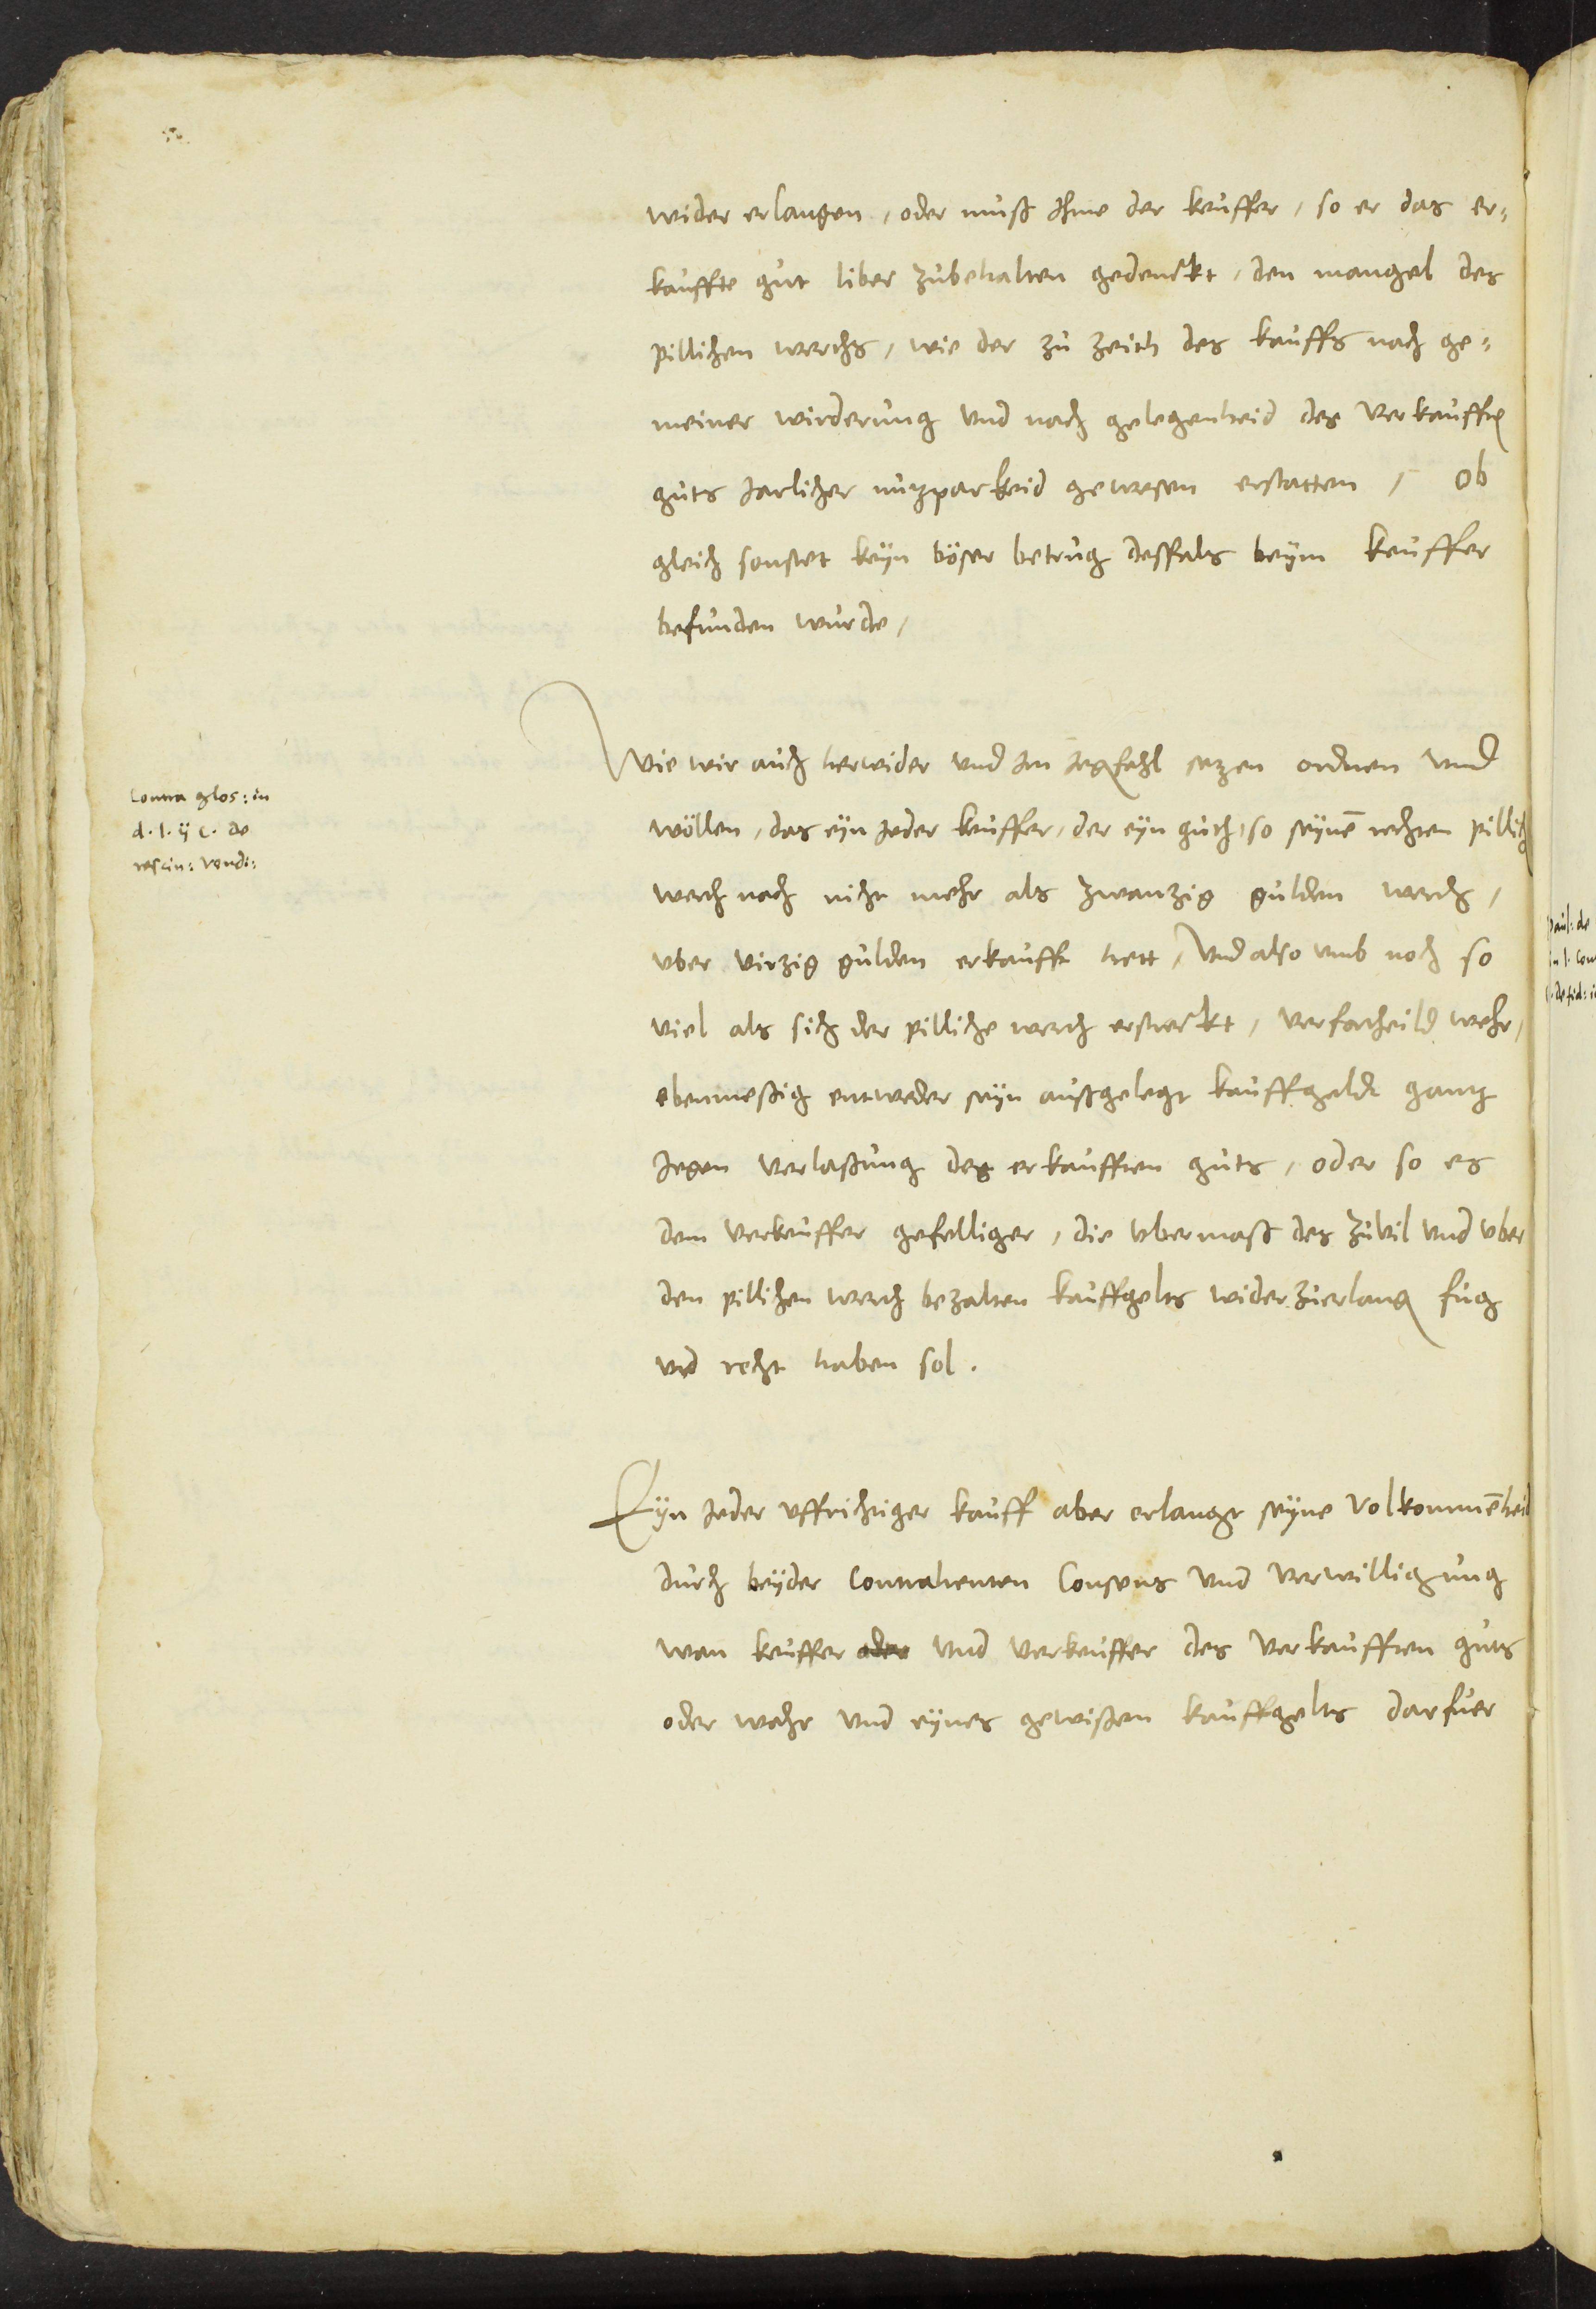 wider erlangen, oder muß Ihme der keuffer, so er das er-
kauffte gut liber zubehalten gedenckt, den mangel des
pillichen werchs, wie der zu zeith des kauffs nach ge-
meiner wirderung und nach gelegenheid des verkaufften
guts Jarlicher nuzparkeid gewesen erstatten, Ob
gleich sonstet keyn böser betrug desfals beym keuffer
befunden wurde,
Wie wir auch herwider und Im segfahl sezen ordnen und
wöllen, das eyn Jeder keuffer, der eyn guth, so seynē rechten pillich
werth nach nicht mehr als zwanzig gulden werth,
uber virzig gulden erkaufft hett, und also umb noch so
viel als sich der pilliche werth erstreckt, verfortheild wehr,
ebenmeßig entweder seyn außgelegt kauffgeldt gantz
Jegen verlaßung des erkaufften guts, oder so es
dem verkeuffer gefelliger, die ubermaß des zuvil und uber
den pillichen werth bezalten kauffgelts wider zuerlang fug
und recht haben sol.
Eyn Jeder uffrichtiger kauff aber erlangt seyne Volkommēheid
durch beyder Contrahenten Consens und verwilligung
wan keuffer oder und verkeuffer des verkaufften guts
oder wahr und eynes gewißen kauffgelts darfuer
Contra glos: in
d. l. ij C. de
rescin: vendi:
paul: de
in l. con